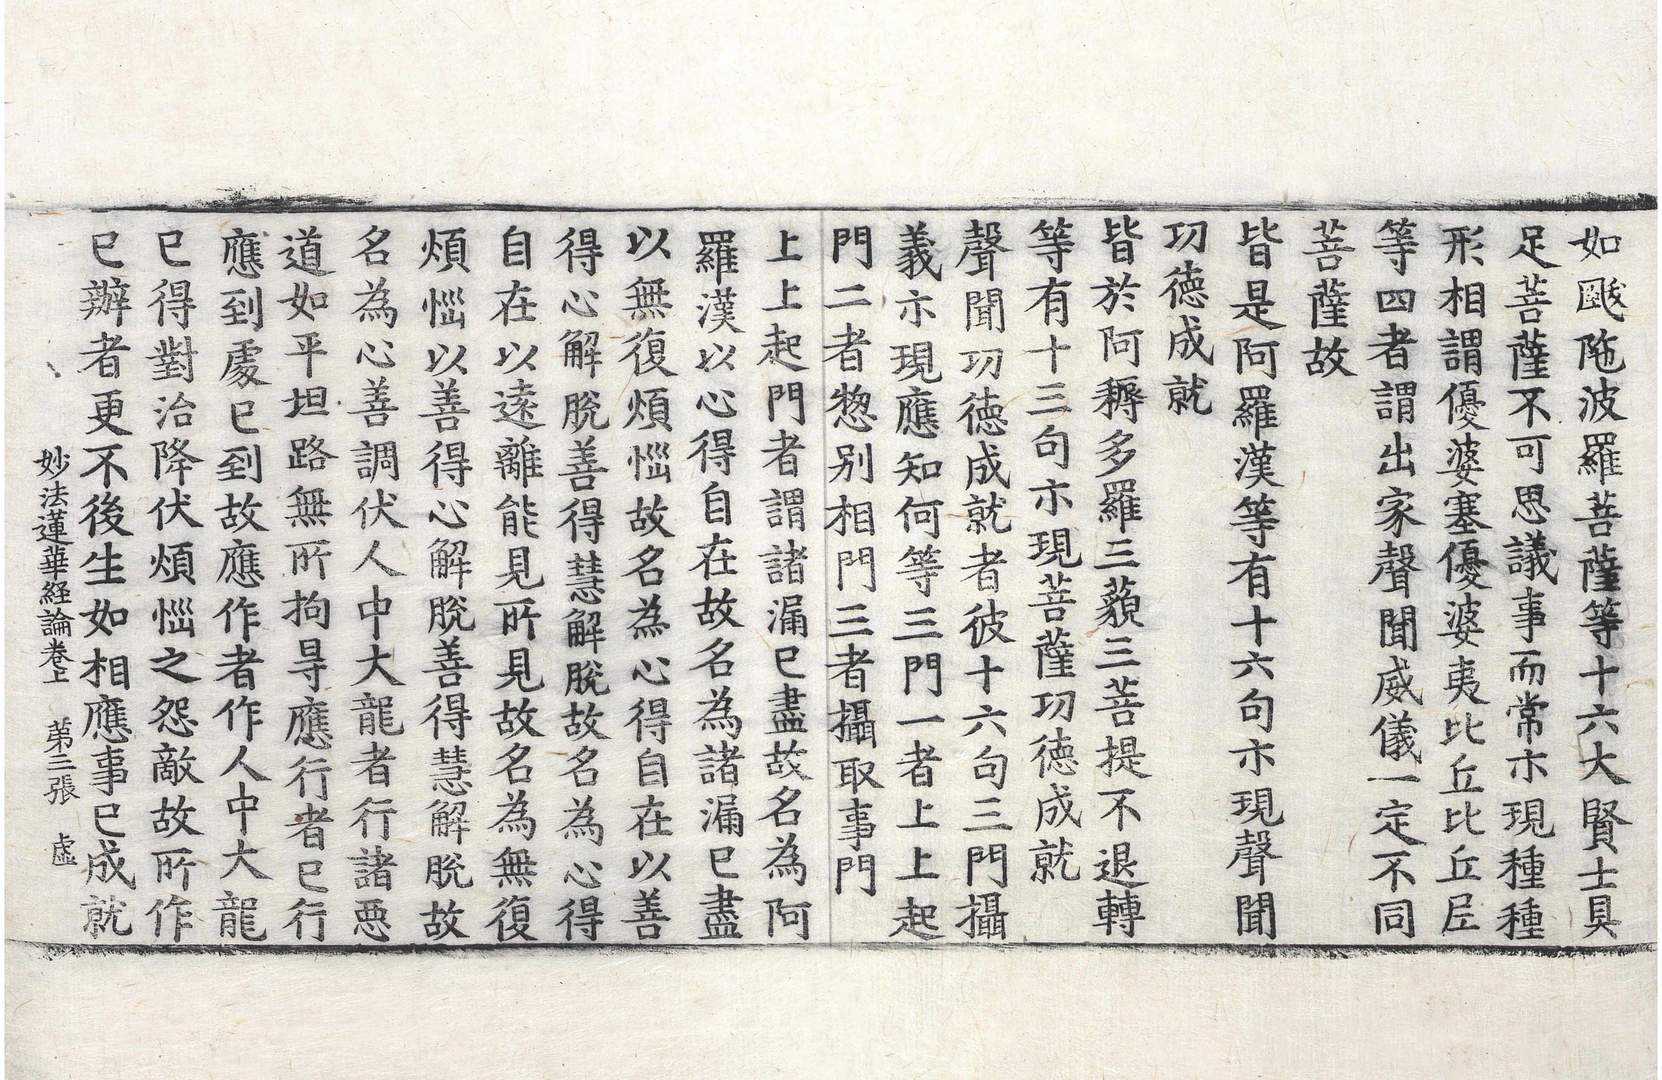 如颰陁波羅菩薩等十六大賢士具
足菩薩不可思議事而常示現種種
形相謂優婆塞優婆夷比丘比丘尼
等四者謂出家聲聞威儀一定不同
菩薩故
皆是阿羅漢等有十六句示現聲聞
功徳成就
皆於阿耨多羅三藐三菩提不退轉
等有十三句示現菩薩功徳成就
聲聞功徳成就者彼十六句三門攝
義示現應知何等三門一者上上起
門二者惣别相門三者攝取事門
上上起門者謂諸漏已盡故名為阿
羅漢以心得自在故名為諸漏已盡
以無復煩惱故名為心得自在以善
得心解脫善得慧解脫故名為心得
自在以遠離能見所見故名為無復
煩惱以善得心解脫善得慧解脫故
名為心善調伏人中大龍者行諸惡
道如平坦路無所拘㝵應行者已行
應到處已到故應作者作人中大龍
已得對治降伏煩惱之怨敵故所作
已辦者更不後生如相應事已成就
妙法蓮華経論卷上 第三張 虛